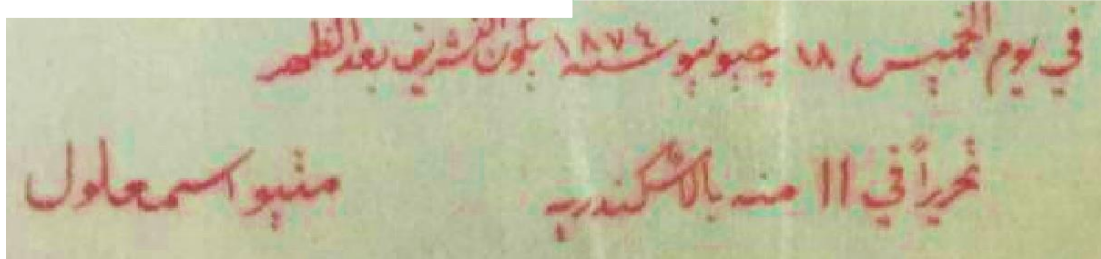 في يوم الخميس ١٨ جيونيو سنة ١٨٧٤ يكون التشريف بعد الظهر
تحريراً في ١١ منه بالاسكندريه